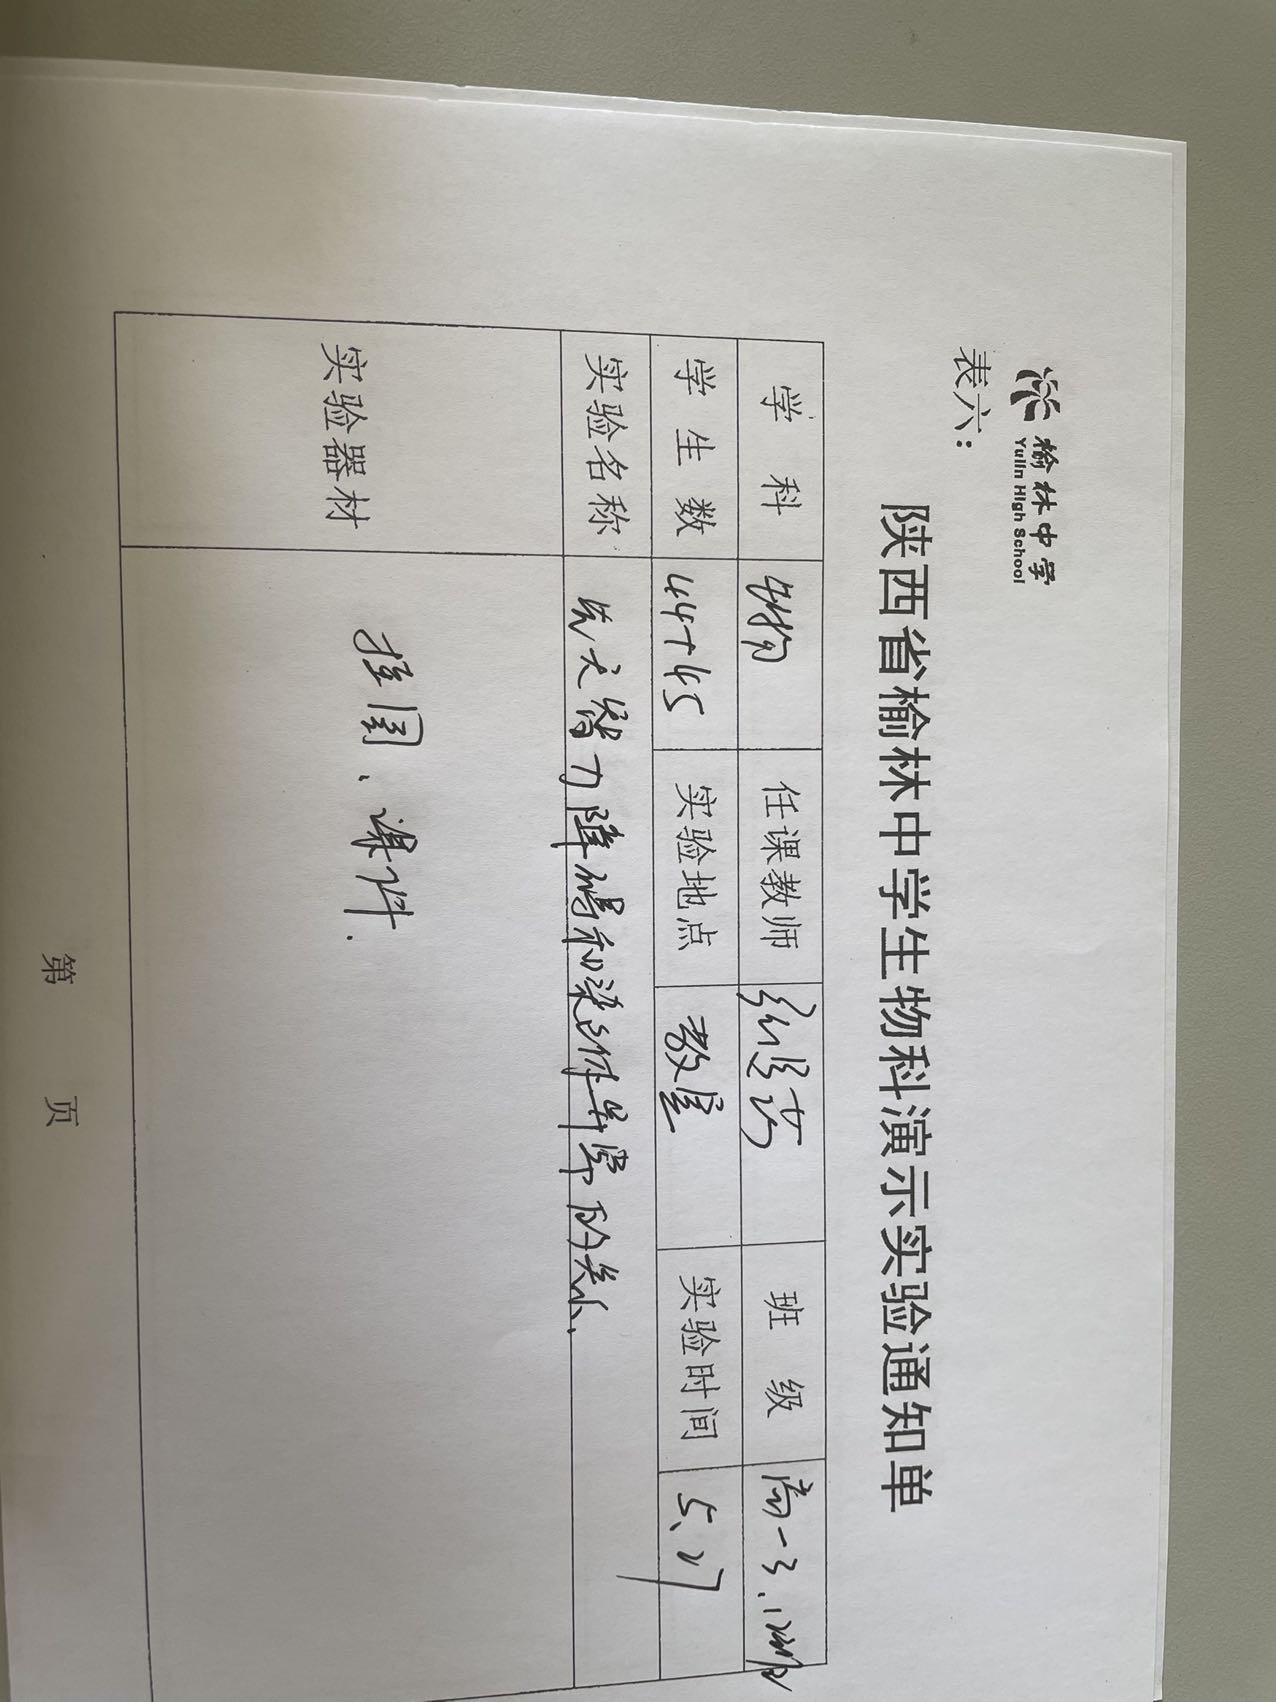 榆林中学
Yulin High School
表六：
陕西省榆林中学生物科演示实验通知单
学 科 生物 任课教师 班 级 高一3.12班
学 生 数 44+45 实验地点 教室 实验时间 5.27
实验名称 先天智力障碍和染色体异常的关系.
实验器材 挂图、课件.
第 页